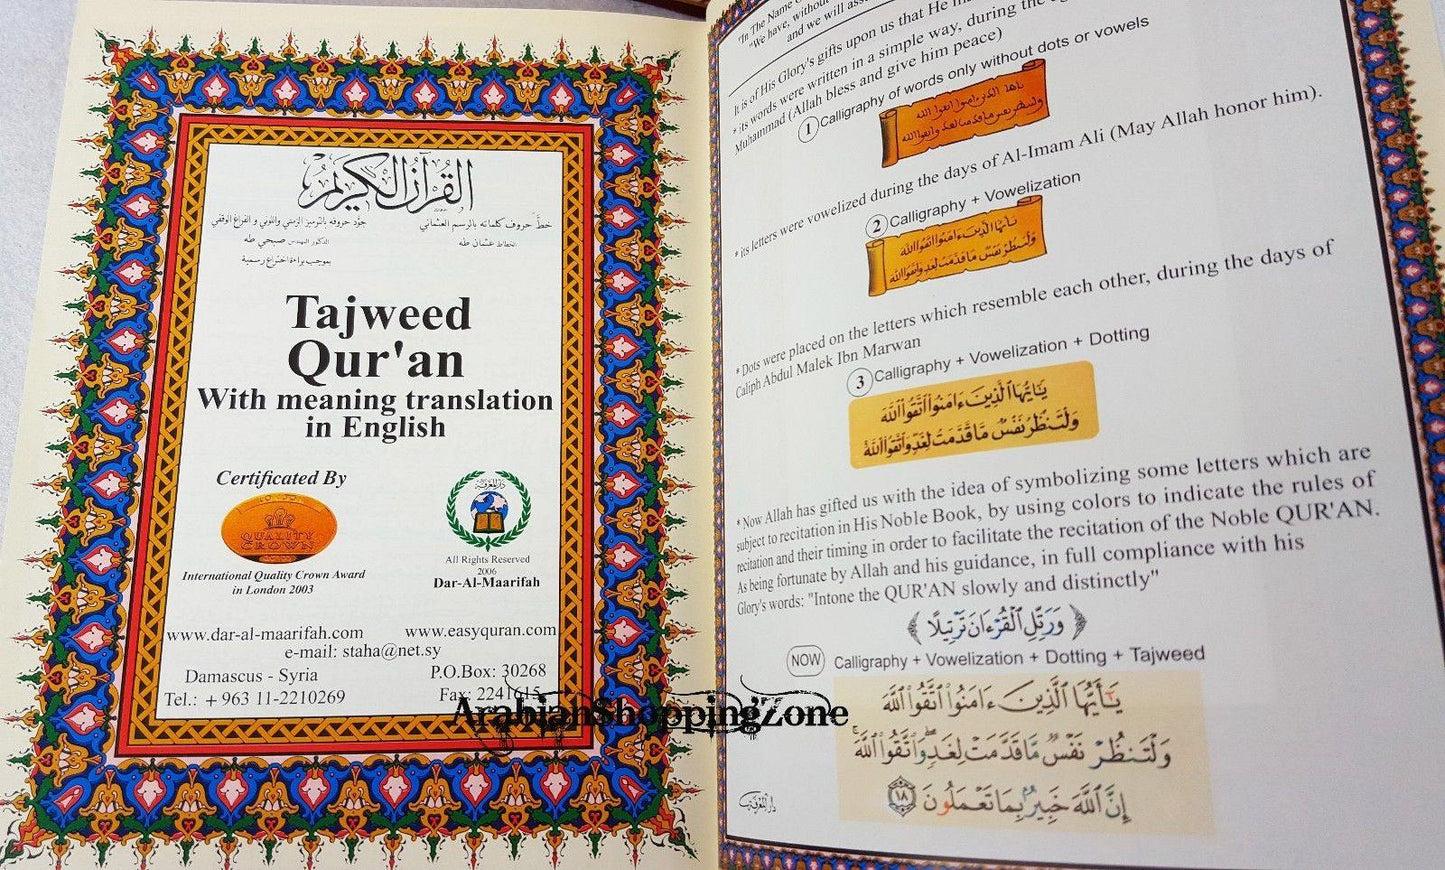 القرآن الكريم
خطَّ حروف كلماته بالرسم العثماني
جوّد حروفه بالترميز الزمني واللوني و الفراغ الوقفي
الخطاط عثمان طه
الدكتور المهندس صبحي طه
بموجب براءة اختراع رسمية
Tajweed
Qur'an
With meaning translation
in English
Certificated By
QUALITY
CROWN
International Quality Crown Award
in London 2003
دار المعرفة
All Rights Reserved
2006
Dar-Al-Maarifah
www.dar-al-maarifah.com
www.easyquran.com
e-mail: staha@net.sy
Damascus - Syria
P.O.Box: 30268
Tel.: + 963 11-2210269
Fax: 2241615
ArabianShoppingZone
"In The Name
"We have, without
and we will
It is of His Glory's gifts upon us that He
* its words were written in a simple way, during the
Muhammad (Allah bless and give him peace)
1 Calligraphy of words only without dots or vowels
* its letters were vowelized during the days of Al-Imam Ali (May Allah honor him).
2 Calligraphy + Vowelization
* Dots were placed on the letters which resemble each other, during the days of
Caliph Abdul Malek Ibn Marwan
3 Calligraphy + Vowelization + Dotting
يَٰٓأَيُّهَا ٱلَّذِينَ ءَامَنُوا۟ ٱتَّقُوا۟ ٱللَّهَ
وَلْتَنظُرْ نَفْسٌ مَّا قَدَّمَتْ لِغَدٍ وَٱتَّقُوا۟ ٱللَّهَ
* Now Allah has gifted us with the idea of symbolizing some letters which are
subject to recitation in His Noble Book, by using colors to indicate the rules of
recitation and their timing in order to facilitate the recitation of the Noble QUR'AN.
As being fortunate by Allah and his guidance, in full compliance with his
Glory's words: "Intone the QUR'AN slowly and distinctly"
﴿وَرَتِّلِ ٱلْقُرْءَانَ تَرْتِيلًا﴾
NOW Calligraphy + Vowelization + Dotting + Tajweed
يَٰٓأَيُّهَا ٱلَّذِينَ ءَامَنُوا۟ ٱتَّقُوا۟ ٱللَّهَ
وَلْتَنظُرْ نَفْسٌ مَّا قَدَّمَتْ لِغَدٍ ۖ وَٱتَّقُوا۟ ٱللَّهَ ۚ
إِنَّ ٱللَّهَ خَبِيرٌۢ بِمَا تَعْمَلُونَ ١٨
دار المعرفة